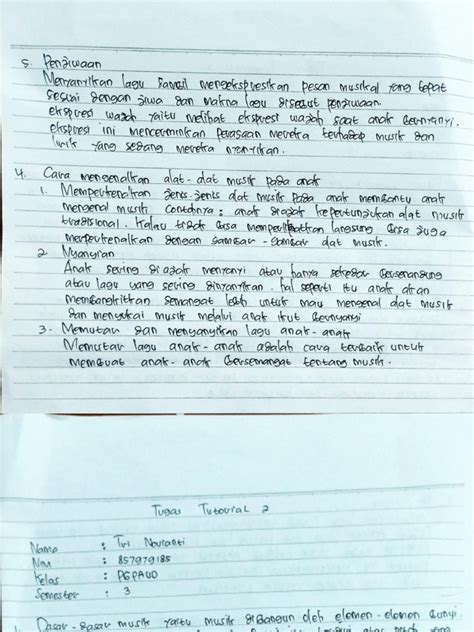 5. Penjiwaan
Menyanyikan lagu sambil mengekspresikan pesan musikal yang tepat
sesuai dengan jiwa dan makna lagu disebut penjiwaan.
ekspresi wajah yaitu melihat ekspresi wajah saat anak bernyanyi.
ekspresi ini mencerminkan perasaan mereka terhadap musik dan
lirik yang sedang mereka nyanyikan.
4. Cara mengenalkan alat-alat musik pada anak
1. Memperkenalkan jenis-jenis alat musik pada anak membantu anak
mengenal musik Contohnya: anak diajak kepertunjukan alat musik
tradisional. Kalau tidak bisa memperlihatkan langsung bisa juga
memperkenalkan dengan gambar-gambar alat musik.
2. Nyanyian
Anak sering diajak menyanyi atau hanya sekedar bersenandung
atau lagu yang sering dinyanyikan. hal seperti itu anak akan
membangkitkan semangat lebih untuk mau mengenal alat musik
dan menyukai musik melalui anak ikut bernyanyi
3. Memutar dan menyanyikan lagu anak-anak
Memutar lagu anak-anak adalah cara terbaik untuk
membuat anak-anak bersemangat tentang musik.
Tugas Tutorial 2
Nama : Tri Nouranti
Nim : 857979185
Kelas : PGPAUD
Semester : 3
1. Dasar-dasar musik yaitu musik dibangun oleh elemen-elemen bunyi.